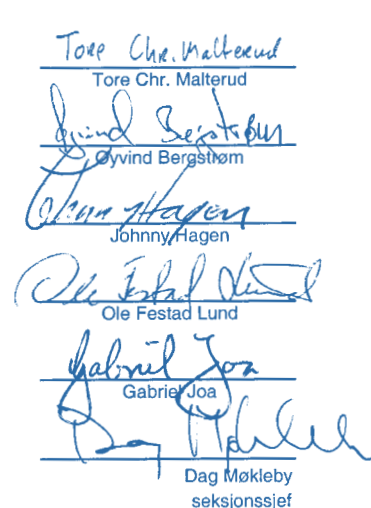 Tore Chr. Malterud
Tore Chr. Malterud
Øyvind Bergstrøm
Øyvind Bergstrøm
Johnny Hagen
Johnny Hagen
Ole Festad Lund
Ole Festad Lund
Gabriel Joa
Gabriel Joa
Dag Møkleby
Dag Møkleby
seksjonssjef